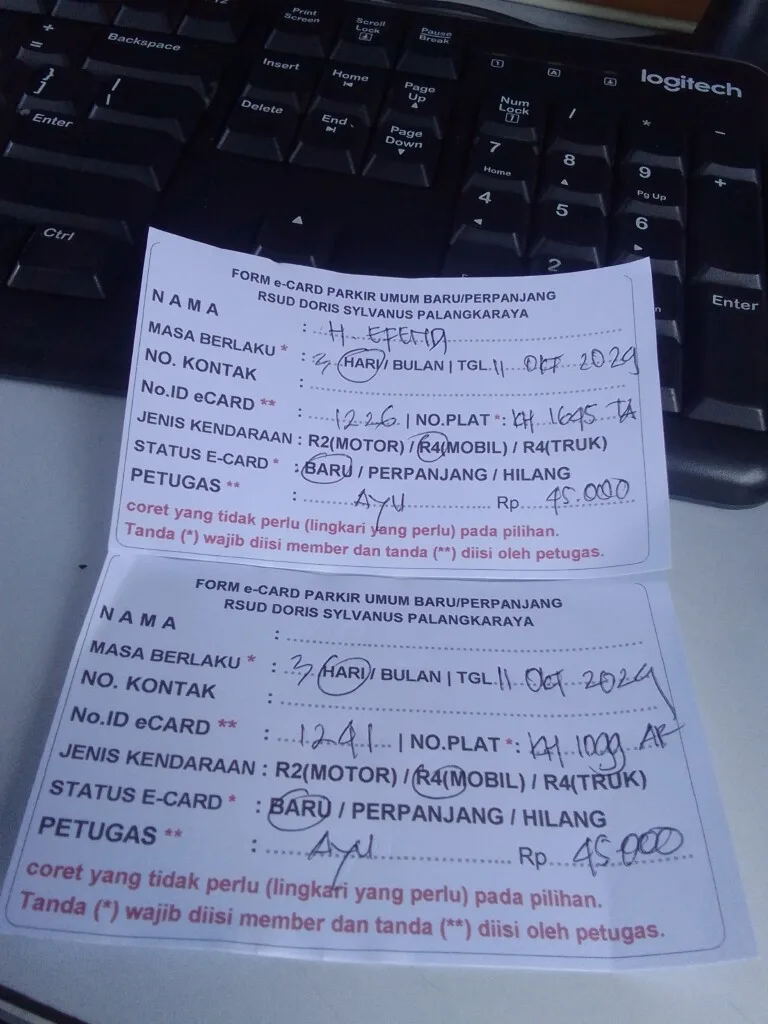 Print Screen
Scroll Lock
Pause Break
+
=
Backspace
Insert
Home
Page Up
logitech
}
]
|
\
Num Lock
/
*
-
Enter
Delete
End
Page Down
7 Home
8
9 Pg Up
+
4
5
6
Ctrl
2
Enter
FORM e-CARD PARKIR UMUM BARU/PERPANJANG
RSUD DORIS SYLVANUS PALANGKARAYA
N A M A : H. EFENDI
MASA BERLAKU * : 3 HARI / BULAN | TGL. 11 OKT 2024
NO. KONTAK :
No.ID eCARD ** : 1226 | NO.PLAT *: KH 1645 TA
JENIS KENDARAAN : R2(MOTOR) / R4(MOBIL) / R4(TRUK)
STATUS E-CARD * : BARU / PERPANJANG / HILANG
PETUGAS ** : AYU Rp 45.000
coret yang tidak perlu (lingkari yang perlu) pada pilihan.
Tanda (*) wajib diisi member dan tanda (**) diisi oleh petugas.
FORM e-CARD PARKIR UMUM BARU/PERPANJANG
RSUD DORIS SYLVANUS PALANGKARAYA
N A M A :
MASA BERLAKU * : 3 HARI / BULAN | TGL. 11 Okt 2024
NO. KONTAK :
No.ID eCARD ** : 1241 | NO.PLAT *: KH 1099 AF
JENIS KENDARAAN : R2(MOTOR) / R4(MOBIL) / R4(TRUK)
STATUS E-CARD * : BARU / PERPANJANG / HILANG
PETUGAS ** : Ayu Rp 45.000
coret yang tidak perlu (lingkari yang perlu) pada pilihan.
Tanda (*) wajib diisi member dan tanda (**) diisi oleh petugas.